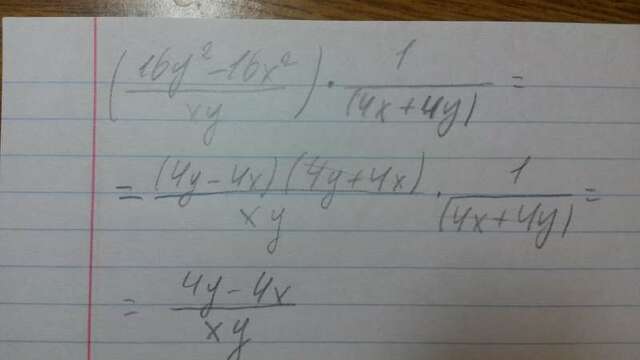 (16y²-16x²/xy) · 1/(4x+4y) =
= (4y-4x)(4y+4x)/xy · 1/(4x+4y) =
= 4y-4x/xy